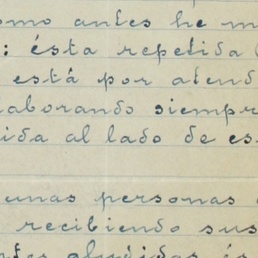 como antes he m
: ésta repetida
está por atend
laborando siempr
ida al lado de es
unas personas
recibiendo sus
aludidas és